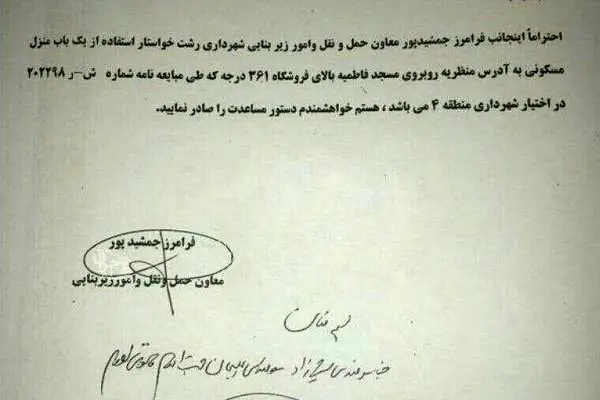 احتراماً اینجانب فرامرز جمشیدپور معاون حمل و نقل وامور زیر بنایی شهرداری رشت خواستار استفاده از یک باب منزل
مسکونی به آدرس منظریه روبروی مسجد فاطمیه بالای فروشگاه ۳۶۱ درجه که طی مبایعه نامه شماره ش-ر ۲۰۲۲۹۸
در اختیار شهرداری منطقه ۴ می باشد ، هستم خواهشمندم دستور مساعدت را صادر نمایید.
فرامرز جمشید پور
معاون حمل ونقل وامورزیربنایی